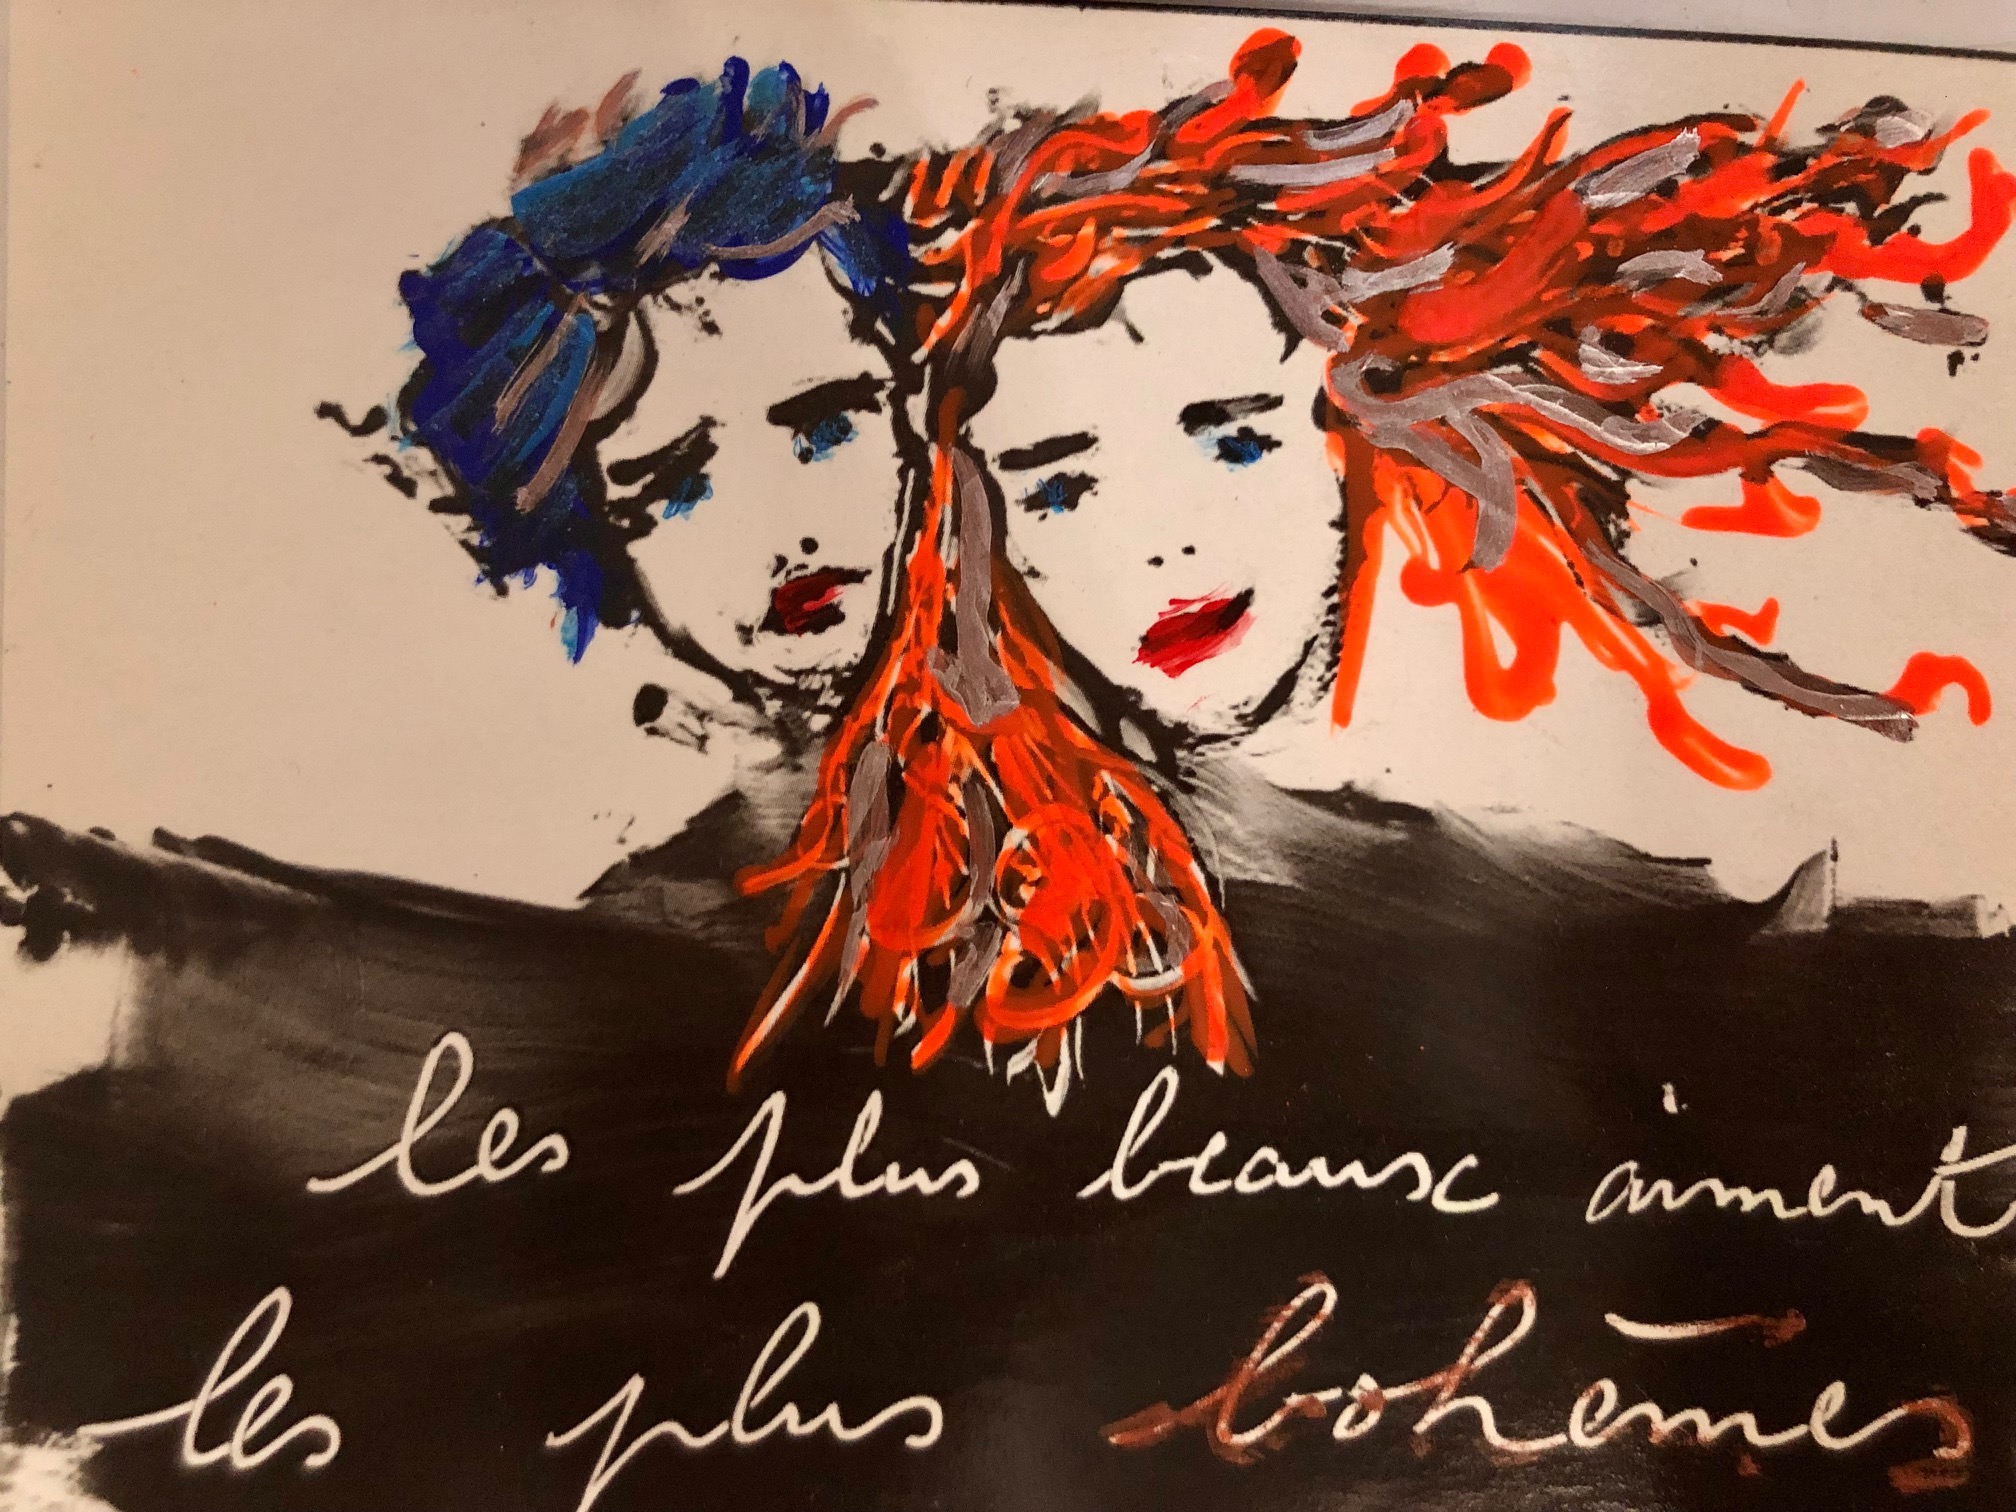 les plus beaux aiment
les plus bohèmes